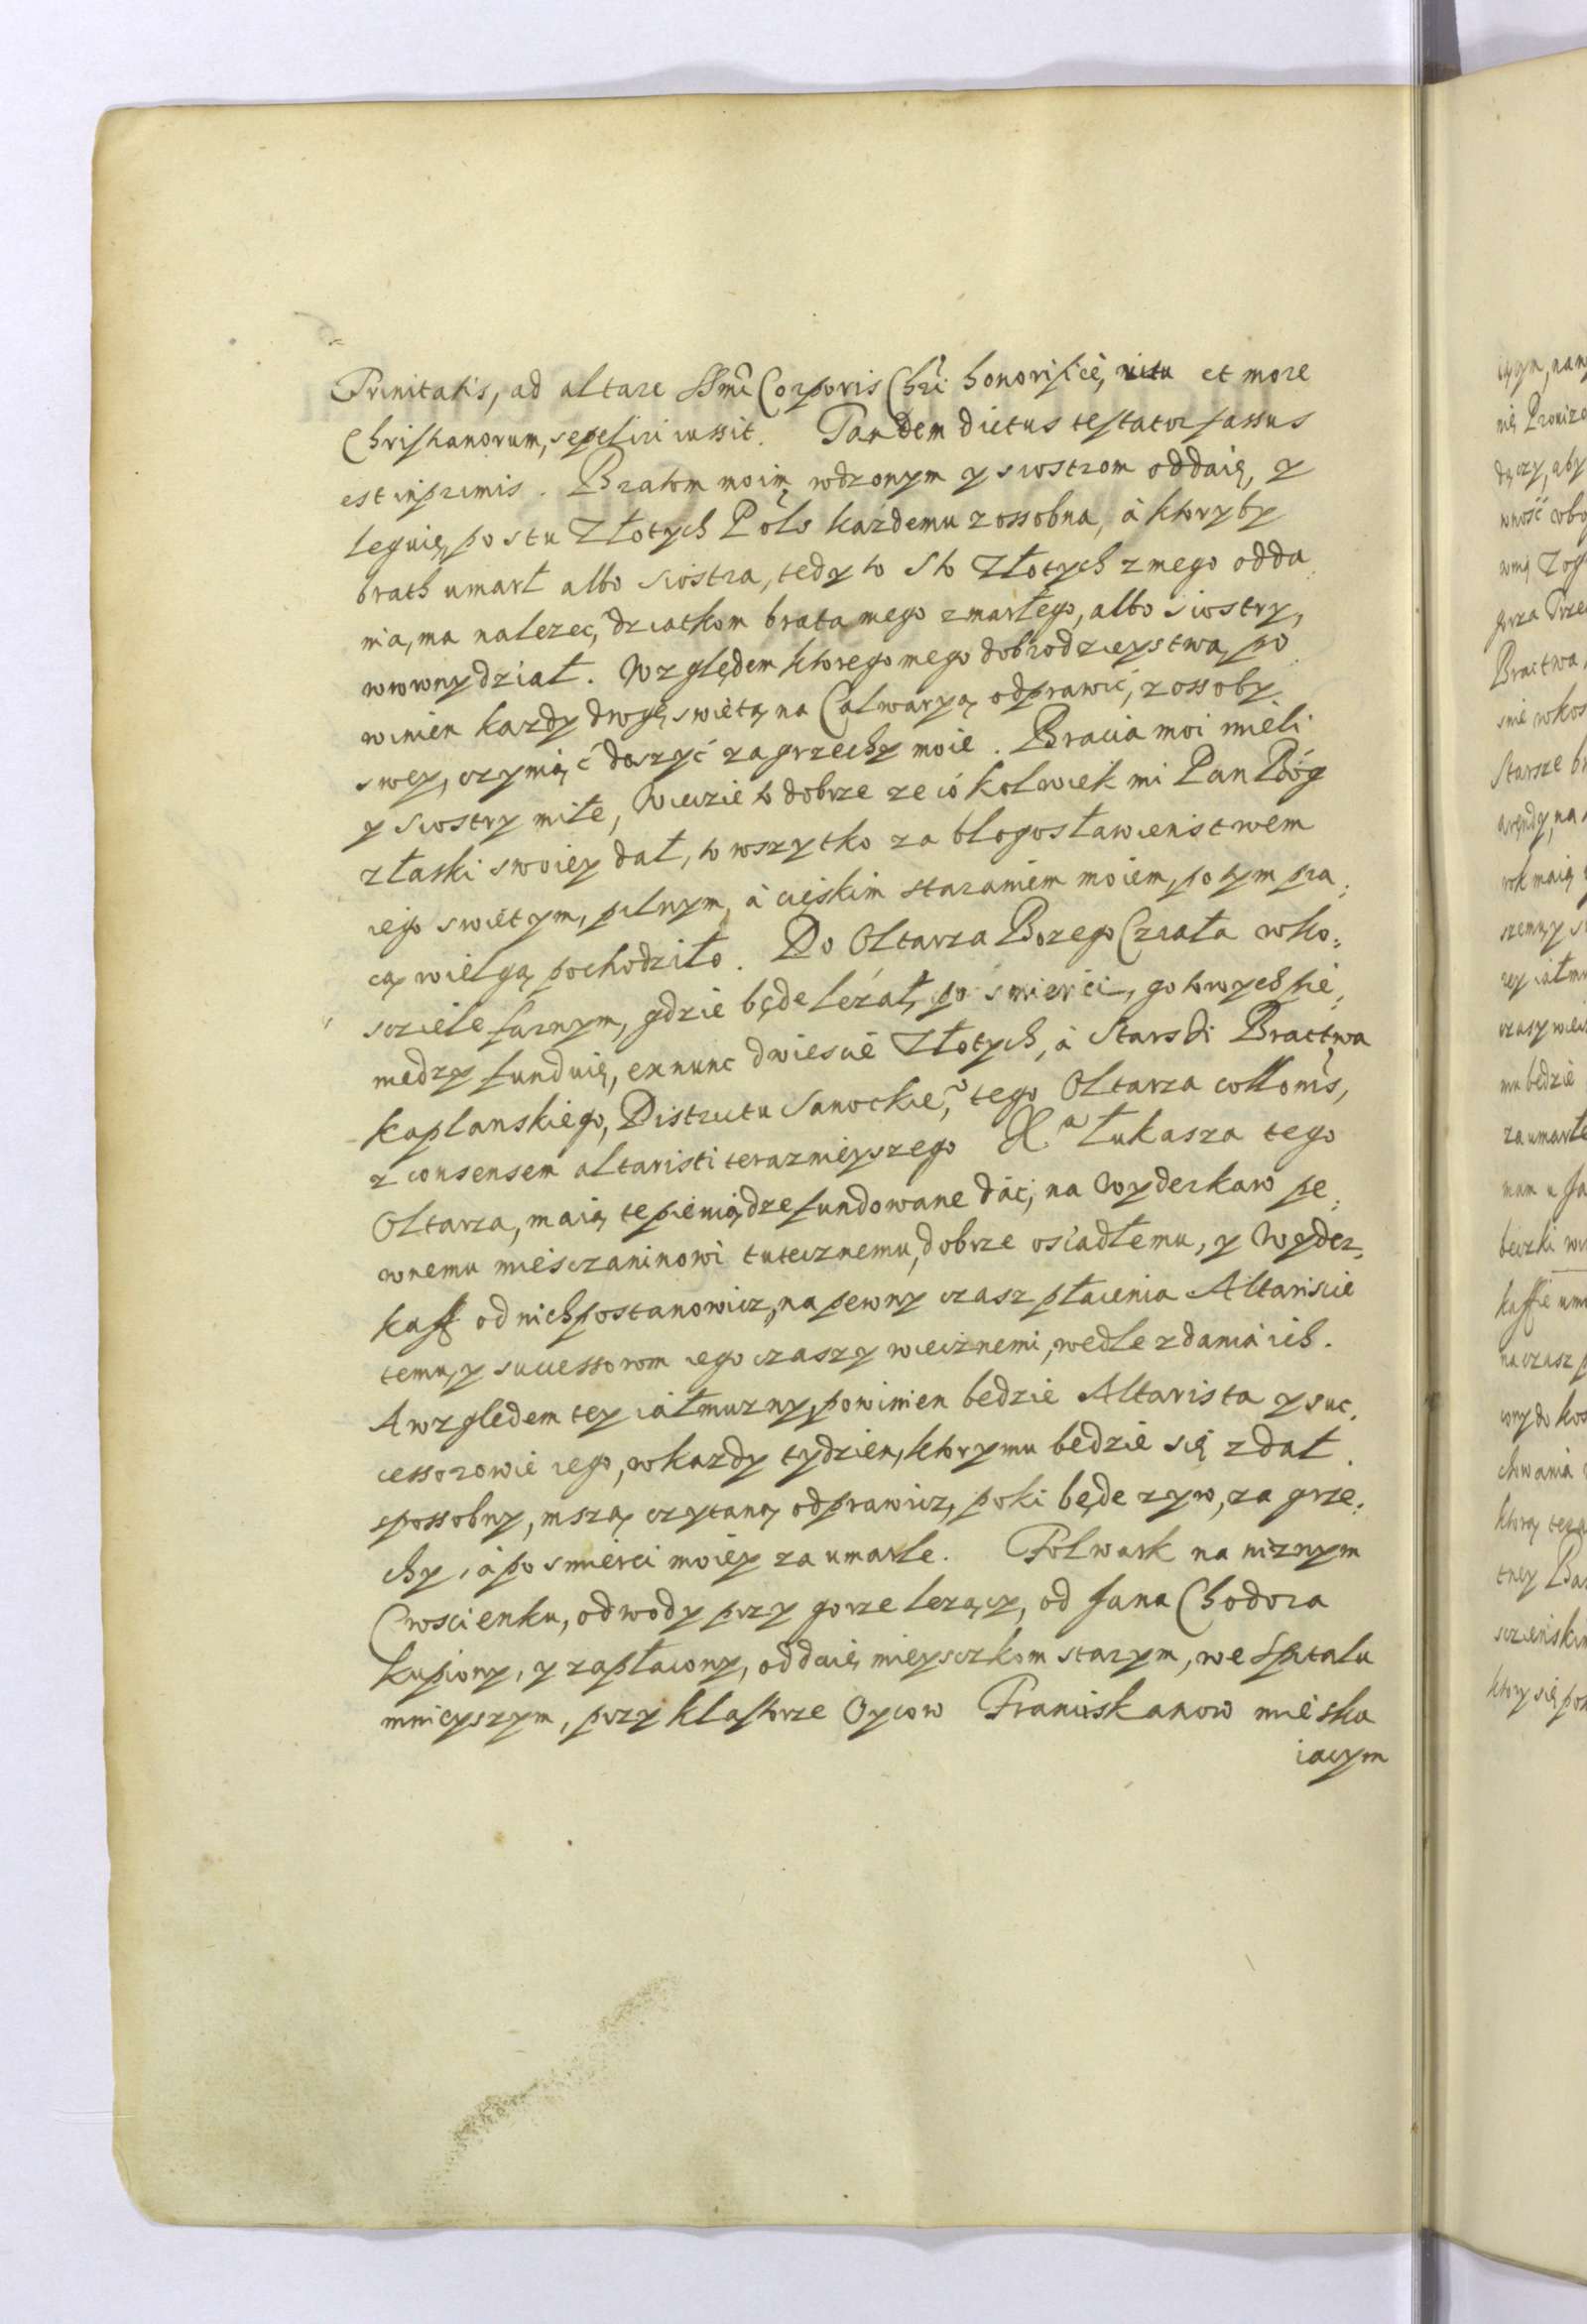 Trinitatis, ad altare SSmi Corporis Chri honorifice, ritu et more
Christianorum, sepeliri iussit. Tandem dictus testator fassus
est inprimis. Bratom moim rodzonym y siostrom oddaię, y
leguię, po stu Złotych Pols każdemu z ossobna, à ktoryby
brath umarł albo siostra, tedy to sto Złotych z mego odda
nia, ma nalezec, dziatkom brata mego zmarłego, albo siostry,
wrowny dział. Względem ktorego mego dobrodzieystwa, po
winien kazdy drogę swiętą na Calwaryą odprawić, z ossoby
swey, czyniąć doszyć za grzechy moie. Bracia moi mieli
y siostry miłe, Wiedzie to dobrze ze co kolwiek mi Pan Bóg
z łaski swoiey dał, to wszytko za błogosławienstwem
iego swiętym, pilnym, à cięskim staraniem moiem, potym pra:
cą wielgą pochodziło. Do Ołtarza Bozego Cziała wko:
sciele farnym, gdzie będe leźał, po smierći, gotowych pie:
niedzy funduię, ex nunc dwiescie Złotych, à Starsi Bractwa
kaplanskiego, Districtu Sanockieo, tego Oltarza collonis,
z consensem altaristi teraznieyszego X.a Łukasza tego
Oltarza, maią te pieniądze fundowane dać, na Wyderkaw pe:
wnemu miesczaninowi tutecznemu, dobrze osiadłemu, y Wyder:
kaff od nich postanowicz, na pewny czasz płacenia Altariscie
temu, y successorom iego czaszy wiecznemi, wedle zdania ich.
A względem tey iałmuzny, powinien bedzie Altarista y suc:
cessorowie iego, w kazdy tydzien, ktory mu bedzie się zdał
spossobny, mszą czytaną odprawicz, poki będe zyw, za grze:
chy, à po smierci moiey za umarle. Folwark na niznym
Cwoscienku, od wody przy gorze lezący, od Jana Chodora
kupiony, y zapłacony, oddaię mieysczkom starym, we Spitalu
mnieyszym, przy klasztorze Oycow Franciskanow mieska
iacym